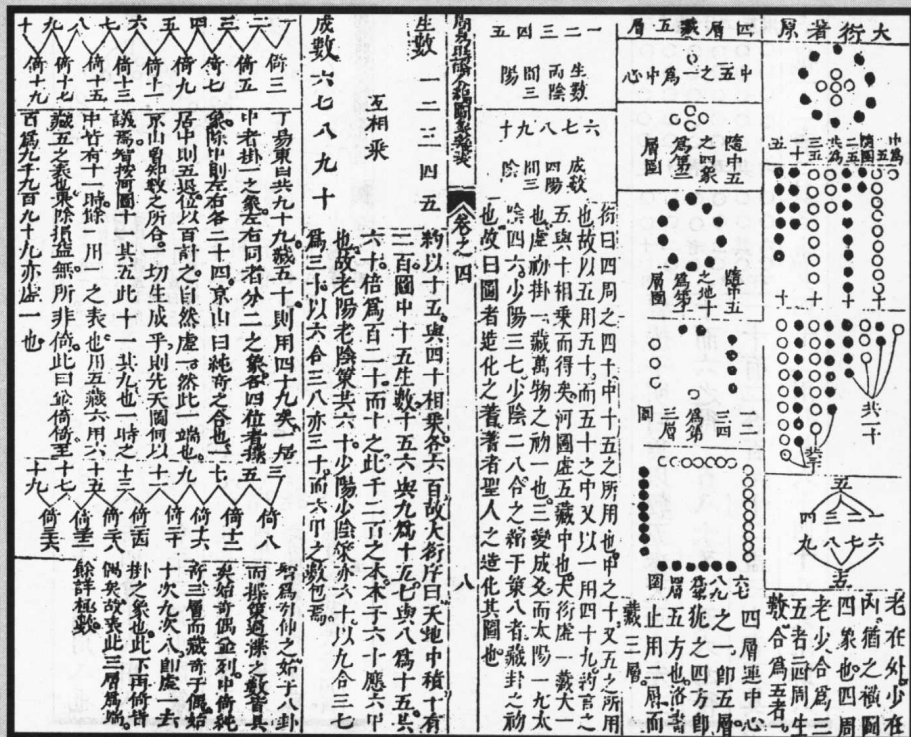 大衍蓍原
中爲五
隨圖
二五
共爲
三五
二十
五
十
十
十
十
共二十
共三十
五
一二三四
六七八九
十五
老在外少在
內猶之橫圖
四象也四周
老少合爲三
五者二四周生
數合爲五者二
四層藏五層
中五之一爲中心
隨中五
之四象
爲第二
層圖
隨中五
之地十
爲第
層圖
一二
三四
爲第
三層
圖
六七
八九
爲第
四層
圖
四層連中心
之一即五層
從之四方即
五方也洛書
止用二層而
藏三層
一二三四五
生數
兩陰
間三
陽
六七八九十
成數
四陽
間三
陰
衍曰四周之四十中十五之所用也中之十又五之所用
也故以五用五十而五十之中又以一用四十九約言之
五與十相乘而得矣河圖虛五藏中也大衍虛一藏大一
也虛初掛一藏萬物之初一也三變成爻而太陽一九太
陰四六少陽三七少陰二八合之衍于策八者藏卦之初
也故曰圖者造化之蓍蓍者聖人之造化其圖也
周易時論合編圖象幾表
卷之四
八
生數一二三四五
互相乘
成數六七八九十
約以十五與四十相乘各六百故大衍序曰天地中積十有
二百圖中十五生數十五六與九爲十五七與八爲十五共
六十倍爲百二十而十之此千二百之本本于六十應六甲
也故老陽老陰策共六十少陽少陰策亦六十以九合三七
爲三十以六合三八亦三十而六甲之數包焉
一二三四五六七八九十
倚三
倚五
倚七
倚九
倚十一
倚十三
倚十五
倚十七
倚十九
丁易東曰共九十九藏五十則用四十九矣一居
中者掛一之象左右同者分二之象各四位者揲四
象除中則左右各二十四京山曰純奇之合也一
居中則五退位以百計之自然虛一然此一端也
京山曾知數之所合一切生成乎則先天圖何以
議焉智按河圖十其五此十一其九也一時之
中皆有十一時餘一用一之表也用五藏六用六
藏五之表也乘除損益無所非倚此曰並倚倚至
百爲九千九百九十九亦虛一也
三五七九十一十三十五十七十九
倚八
倚十二
倚十六
倚二十
倚二十四
倚二十八
倚三十二
倚三十六
智爲列伸之始于八卦
而揲策過揲之數皆具
矣始奇偶並列中倚純
奇三層而藏奇于偶始
十次九次八即虛一去
掛之象也此下再倚皆
偶矣故表此三層爲端
餘詳極數